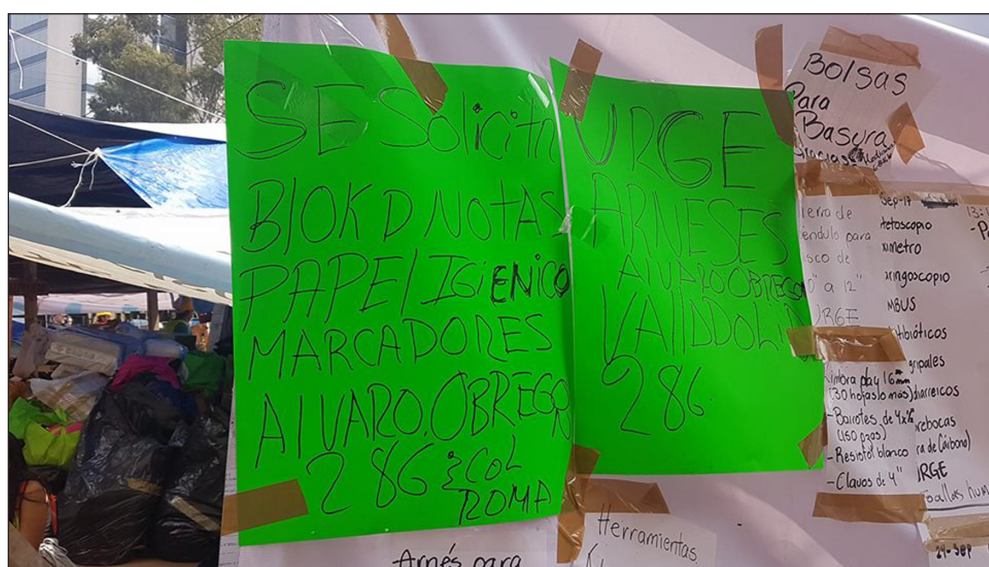 SE Solicita
BlOK D NOTAS
PAPEl IGiENICO
MARCADORES
AlVARO.OBREGO
286 COL
ROMA
URGE
ARNESES
AlVAROOBREGO
VAllDDOLI
286
Bolsas
Para
Basura
Gracias
ierra de
éndulo para
isco de
0" a 12"
URGE
Sep-17
tetoscopio
ximetro
aringoscopio
MBUS
tibióticos
gripales
diarreicos
rebocas
ra de Carbono)
URGE
Toallas hum
play 16 mm
(30 hojas o más)
-Barrotes de 4x
(150 pzas)
-Resistol blanco
-Clavos de 4"
24-Sep
Herramientas
Arnés para